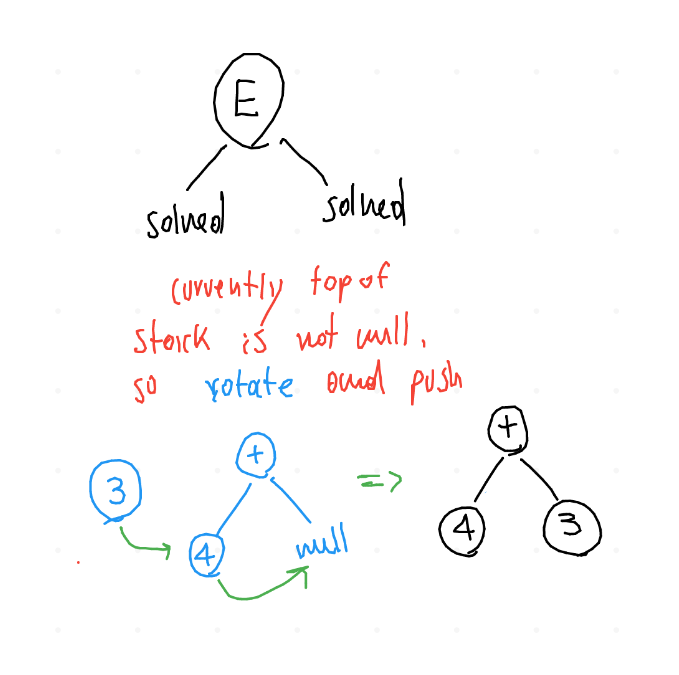 E
solved solved
currently top of
stack is not null,
so rotate and push
+
3 + =>
4 3
4 null